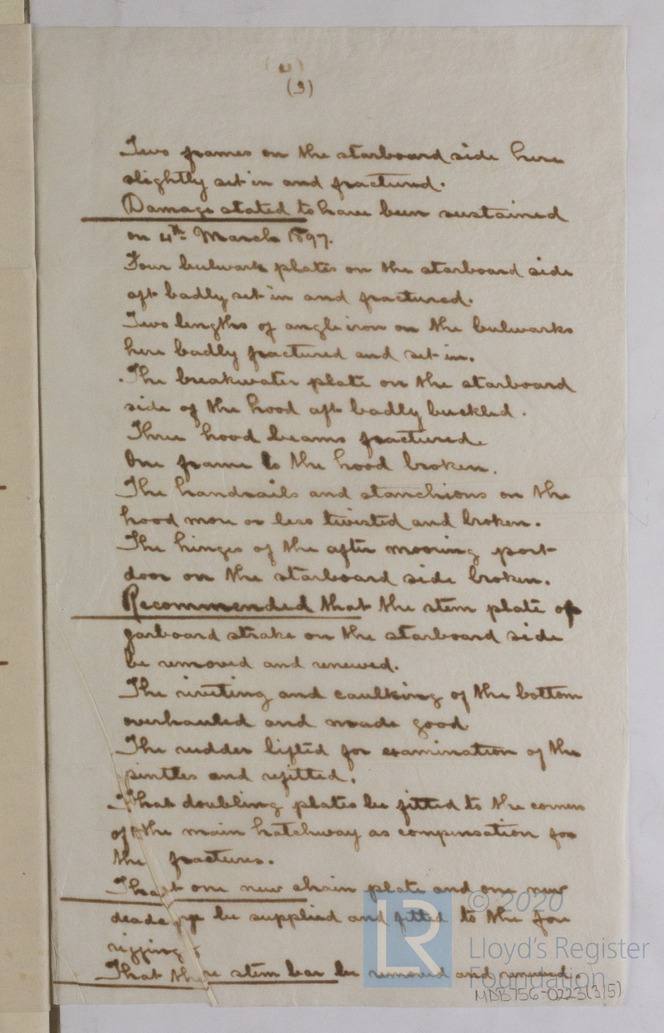 (2)
(3)
Two frames on the starboard side here
slightly set in and fractured.
Damage stated to have been sustained
on 4th March 1897.
Four bulwark plates on the starboard side
aft badly set in and fractured.
Two lengths of angle iron on the bulwarks
here badly fractured and set in.
The breakwater plate on the starboard
side of the hood aft badly buckled.
Three hood beams fractured.
One frame to the hood broken.
The handrails and stanchions on the
hood more or less twisted and broken.
The hinges of the after mooring port
door on the starboard side broken.
Recommended that the stem plate of
garboard strake on the starboard side
be removed and renewed.
The riveting and caulking of the bottom
overhauled and made good
The rudder lifted for examination of the
pintles and refitted.
That doubling plates be fitted to the corners
of the main hatchway as compensation for
the fractures.
That one new chain plate and one new
deadeye be supplied and fitted to the fore
rigging.
That the stem bar be removed and renewed.
© 2020
LR
Lloyd's Register
Foundation
MDB756-0223(3/5)